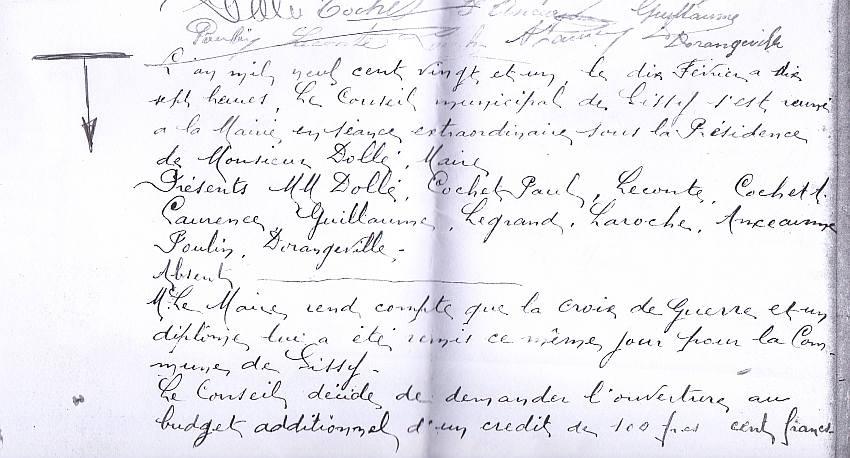 Dollé Cochet Guillaume
Poulin Leconte Laroche A Laurence Dorangeville
L'an mil neuf cent vingt et un, le dix Février a dix
sept heures, Le Conseil municipal de Sissy s'est réuni
a la Mairie, en séance extraordinaire sous la Présidence
de Monsieur Dollé, Maire
Présents MM Dollé, Cochet Paul, Leconte, Cochet A.
Laurence, Guillaume, Legrand, Laroche, Anceaume
Poulin, Dorangeville.
Absent
M. Le Maire rend compte que la croix de Guerre et un
diplôme lui a été remis ce même jour pour la Com-
mune de Sissy.
Le Conseil décide de demander l'ouverture au
budget additionnel d'un credit de 100 frcs cent francs